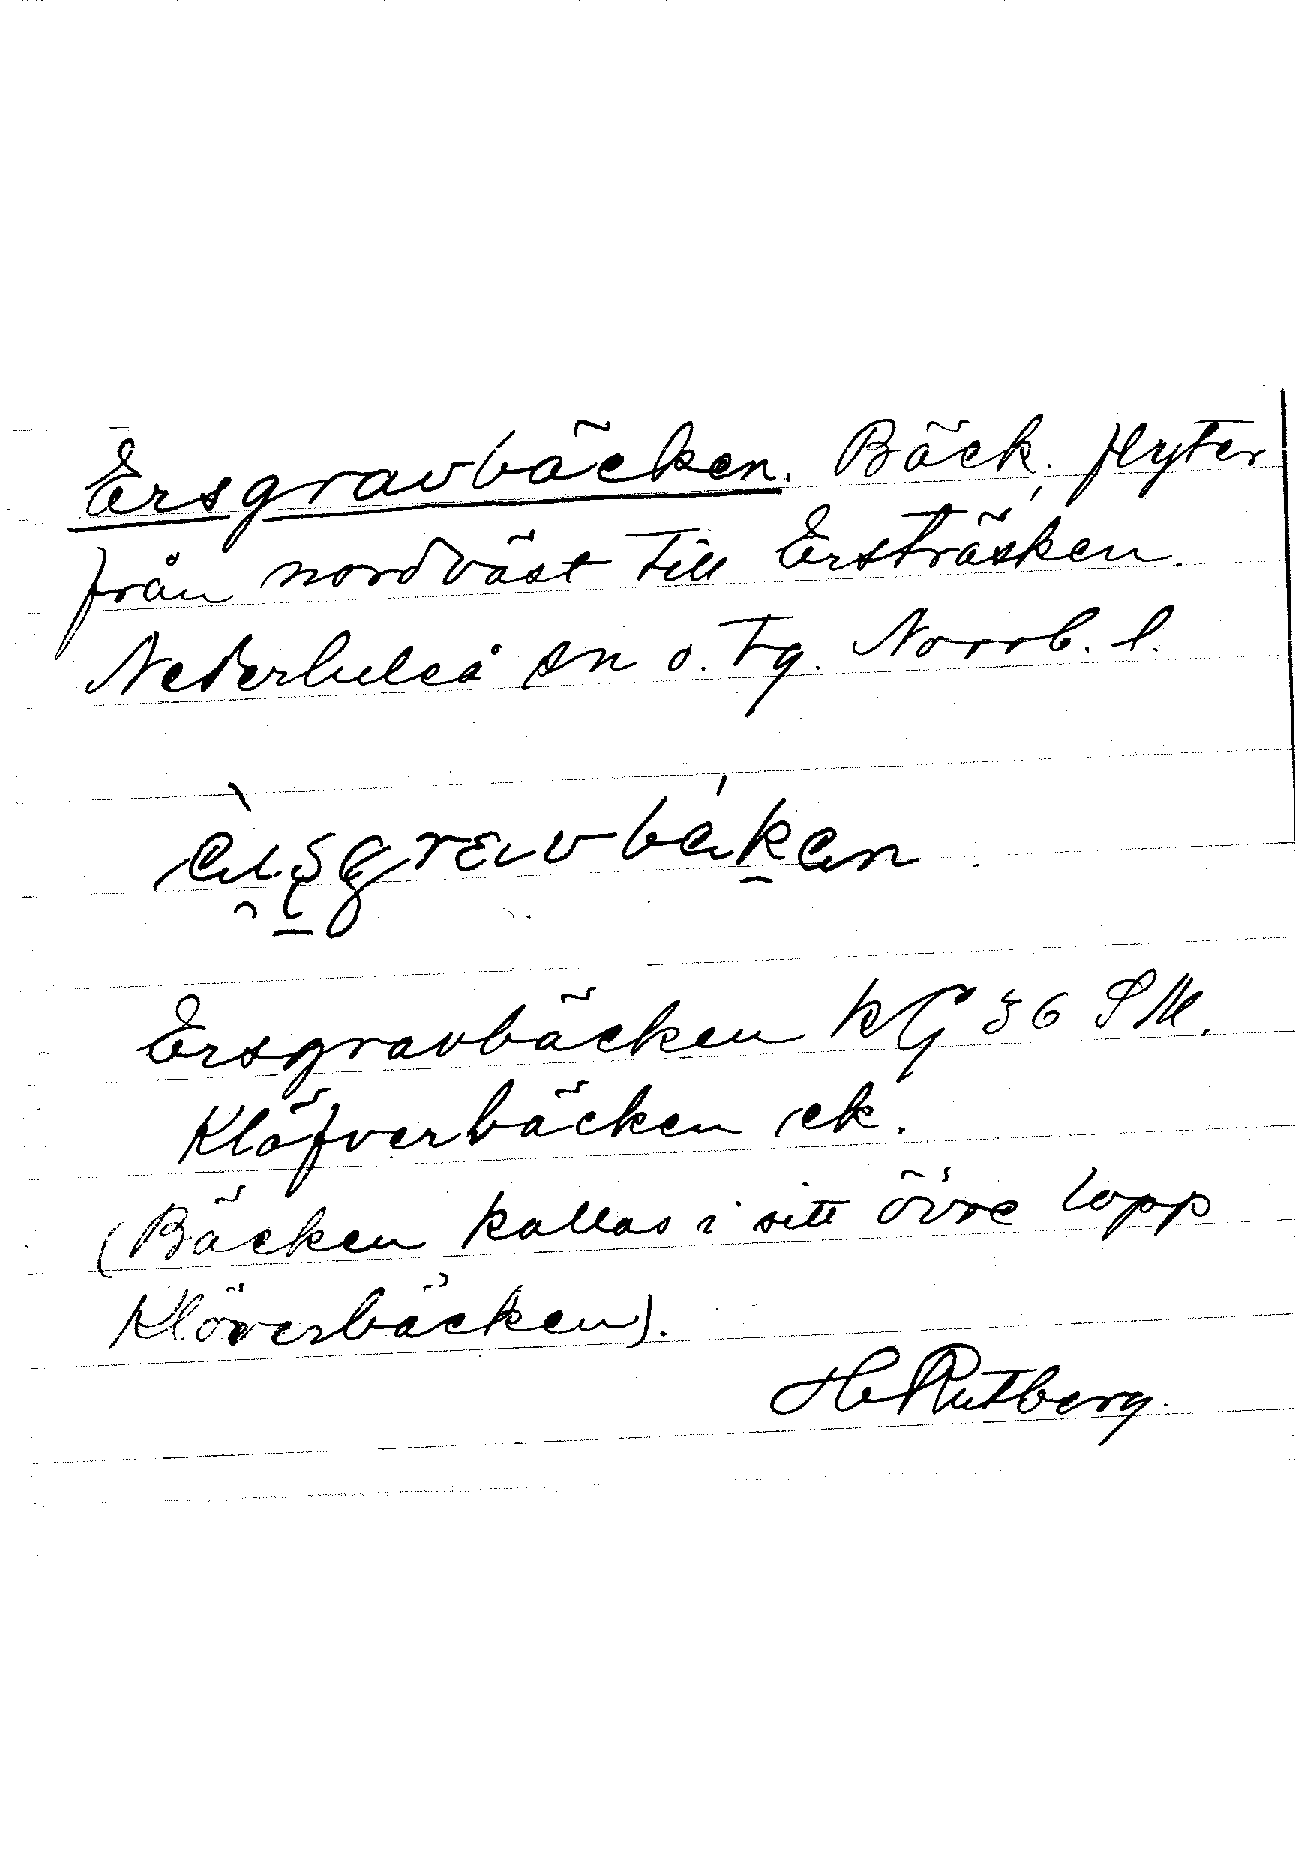 Ersgravbäcken. Bäck, flyter
från nordväst till Ersträsken.
Nederluleå sn o. tg. Norrb. l.
Ersgravbäcken KG 36 SM.
Klöfverbäcken ek.
(Bäcken kallas i sitt övre lopp
Klöverbäcken).
H Rutberg.